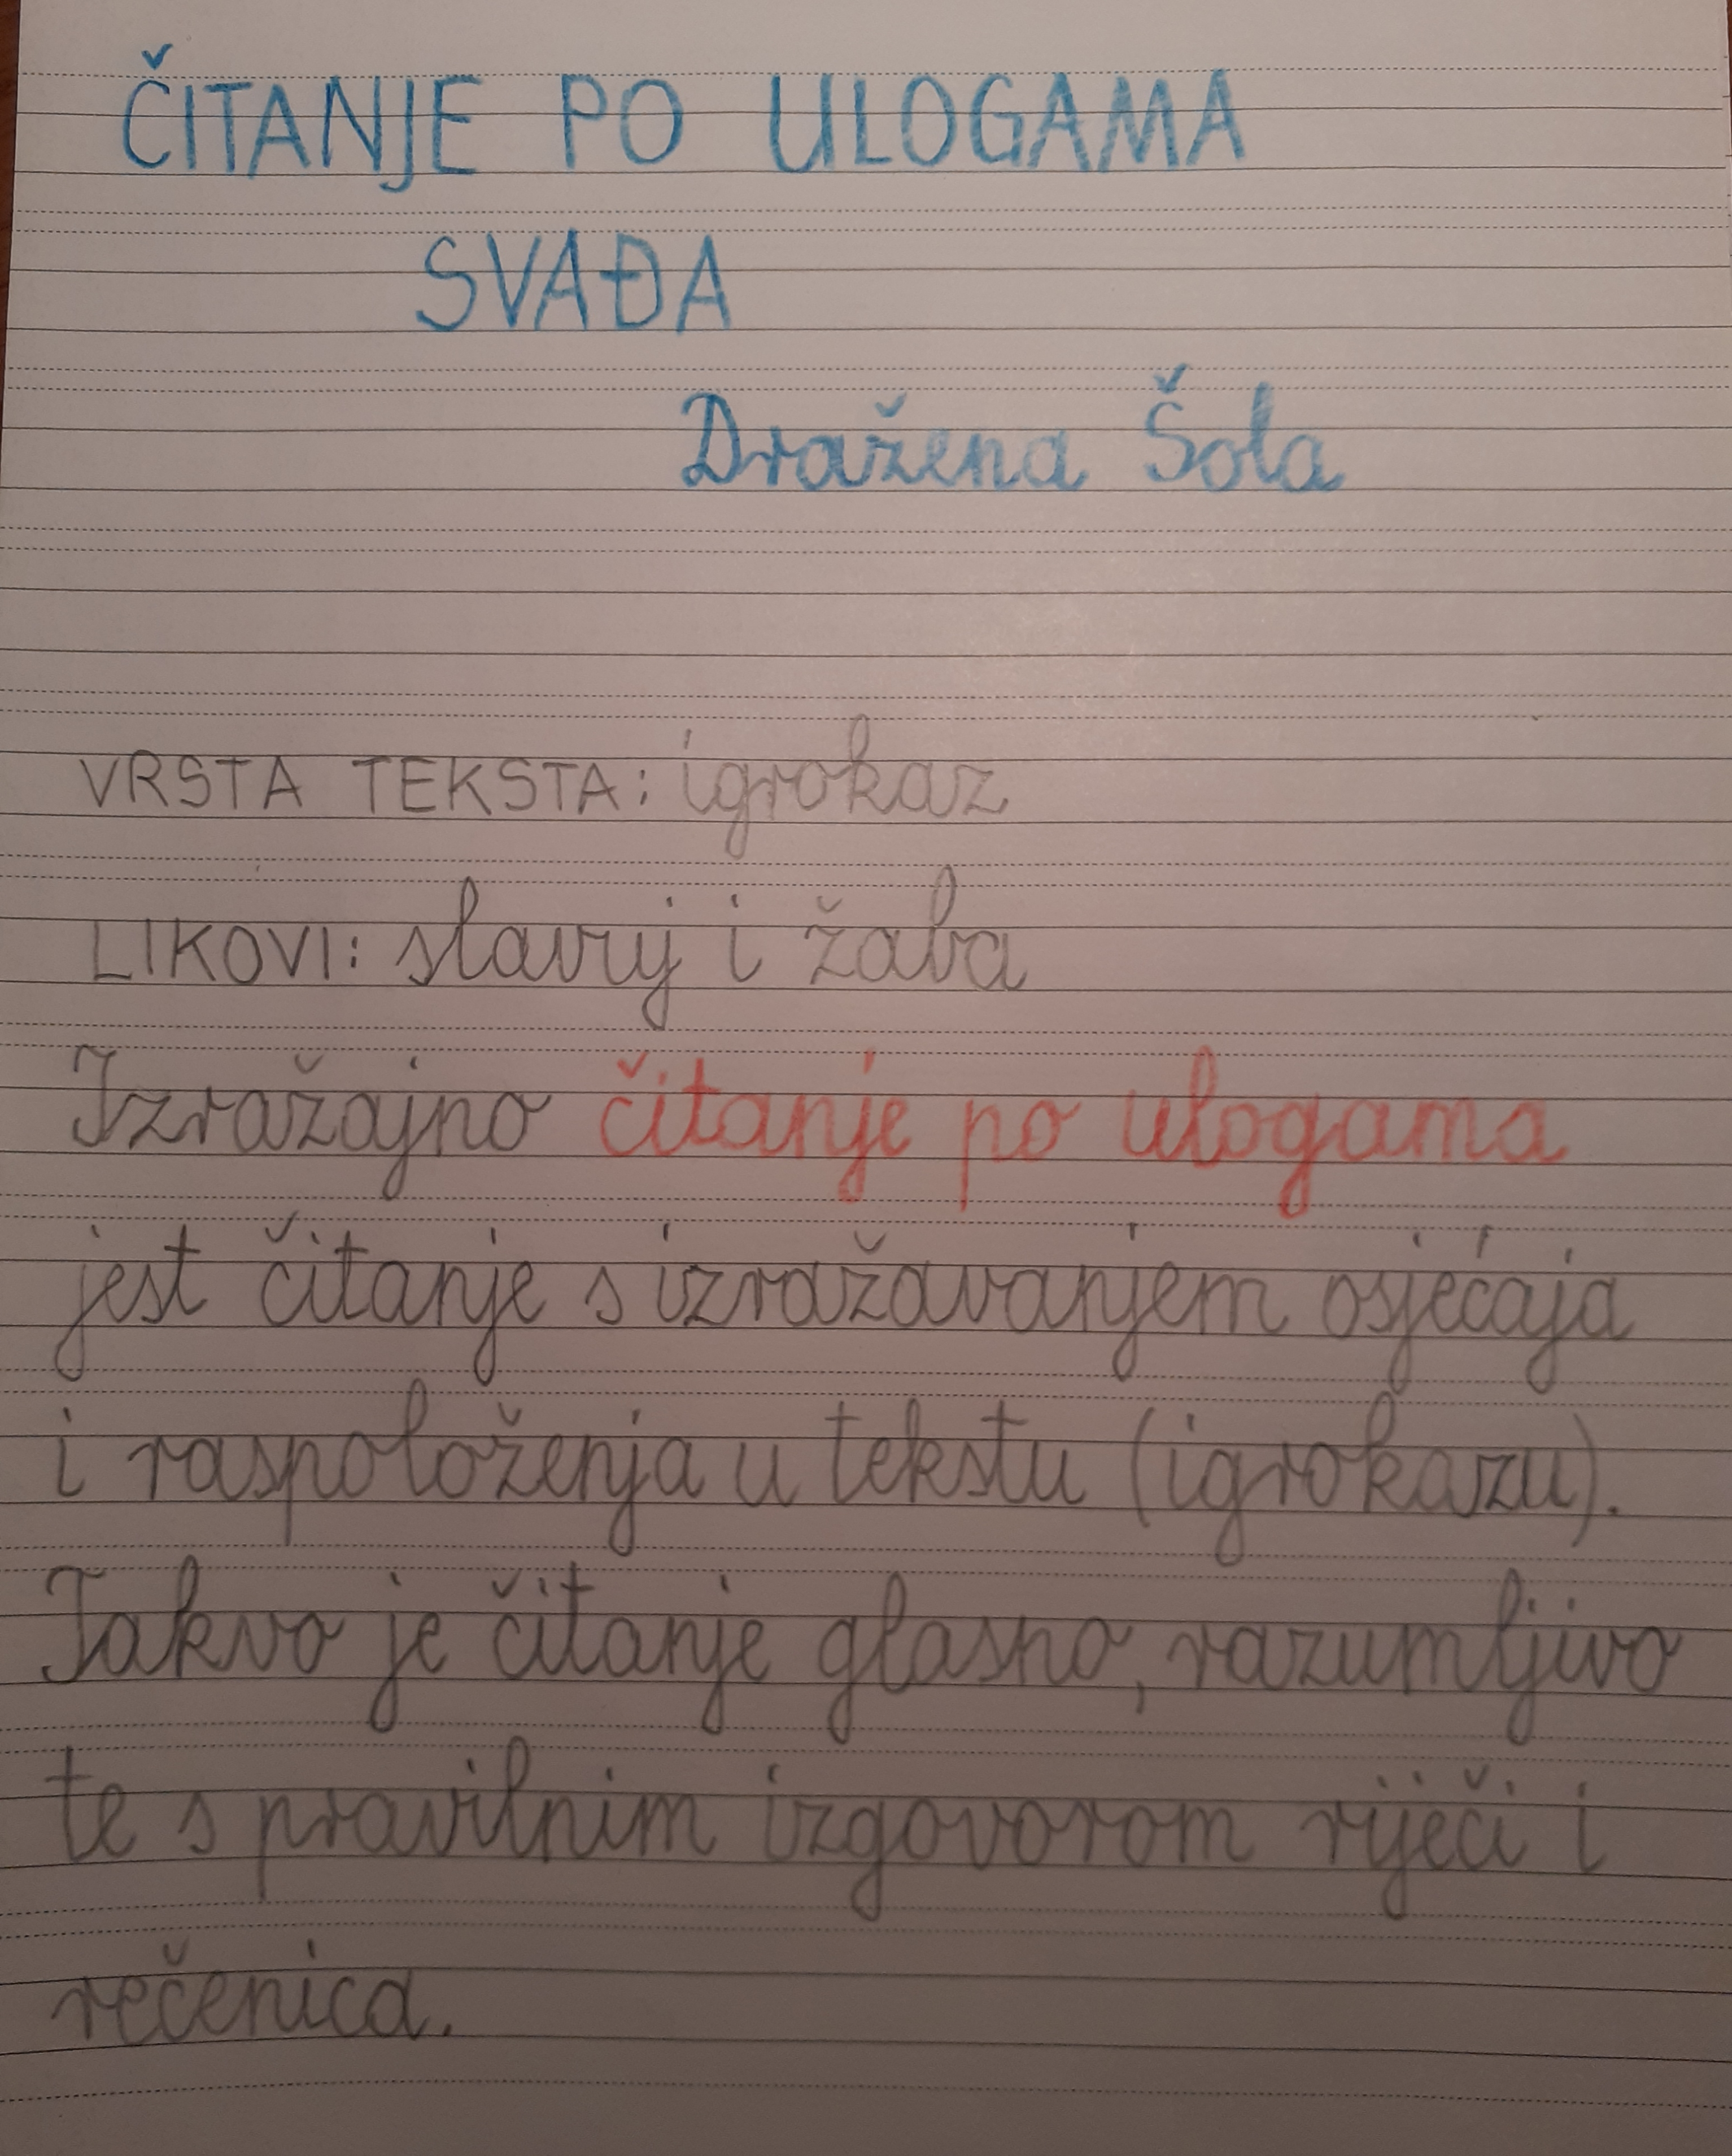 ČITANJE PO ULOGAMA
SVAĐA
Dražena Šola
VRSTA TEKSTA: igrokaz
LIKOVI: slavuj i žaba
Izražajno čitanje po ulogama
jest čitanje s izražavanjem osjećaja
i raspoloženja u tekstu (igrokazu).
Takvo je čitanje glasno, razumljivo
te s pravilnim izgovorom riječi i
rečenica.